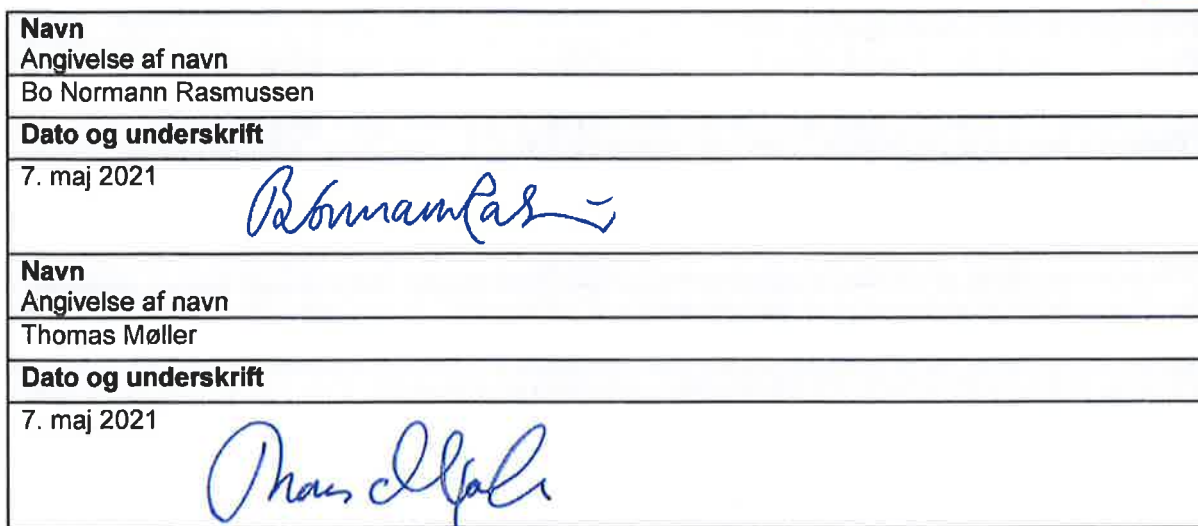 Navn
Angivelse af navn
Bo Normann Rasmussen
Dato og underskrift
7. maj 2021
Navn
Angivelse af navn
Thomas Møller
Dato og underskrift
7. maj 2021